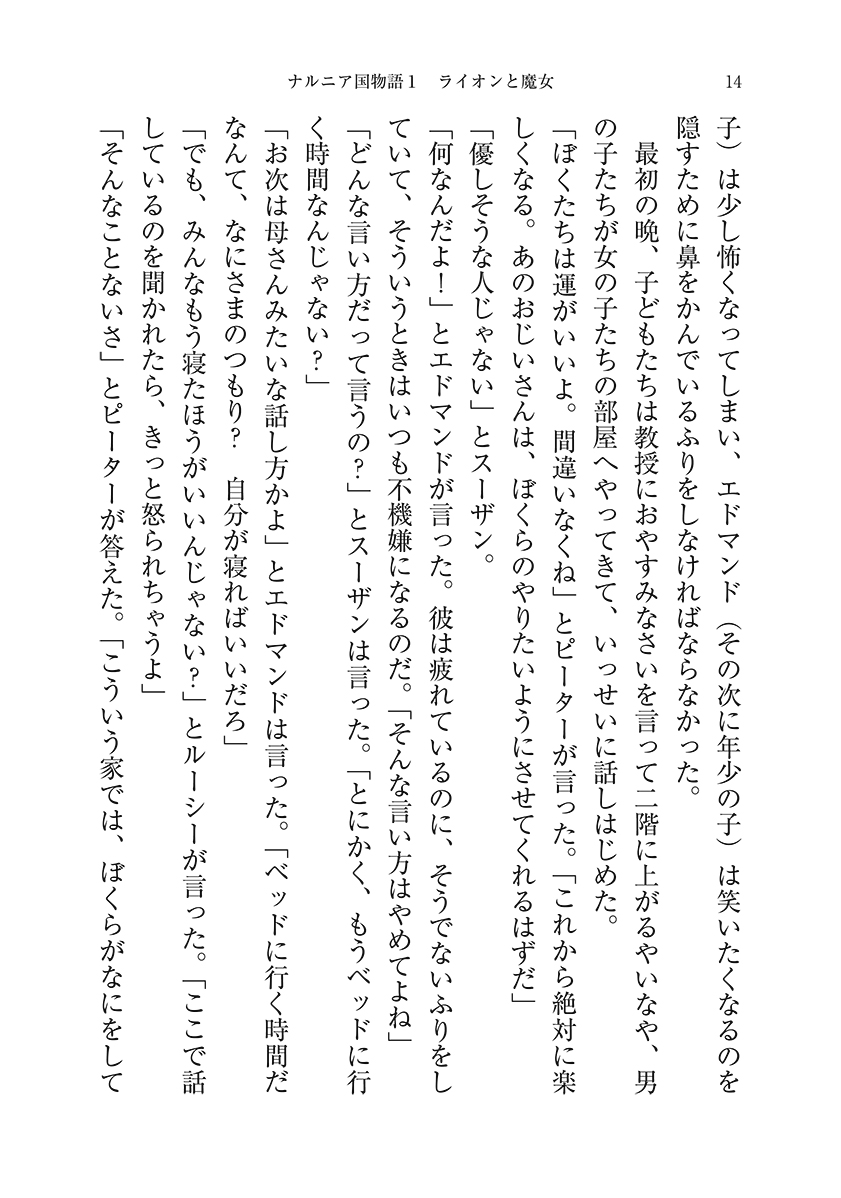 ナルニア国物語1　ライオンと魔女
14
子）は少し怖くなってしまい、エドマンド（その次に年少の子）は笑いたくなるのを
隠すために鼻をかんでいるふりをしなければならなかった。
　最初の晩、子どもたちは教授におやすみなさいを言って二階に上がるやいなや、男
の子たちが女の子たちの部屋へやってきて、いっせいに話しはじめた。
「ぼくたちは運がいいよ。間違いなくね」とピーターが言った。「これから絶対に楽
しくなる。あのおじいさんは、ぼくらのやりたいようにさせてくれるはずだ」
「優しそうな人じゃない」とスーザン。
「何なんだよ！」とエドマンドが言った。彼は疲れているのに、そうでないふりをし
ていて、そういうときはいつも不機嫌になるのだ。「そんな言い方はやめてよね」
「どんな言い方だって言うの？」とスーザンは言った。「とにかく、もうベッドに行
く時間なんじゃない？」
「お次は母さんみたいな話し方かよ」とエドマンドは言った。「ベッドに行く時間だ
なんて、なにさまのつもり？　自分が寝ればいいだろ」
「でも、みんなもう寝たほうがいいんじゃない？」とルーシーが言った。「ここで話
しているのを聞かれたら、きっと怒られちゃうよ」
「そんなことないさ」とピーターが答えた。「こういう家では、ぼくらがなにをして